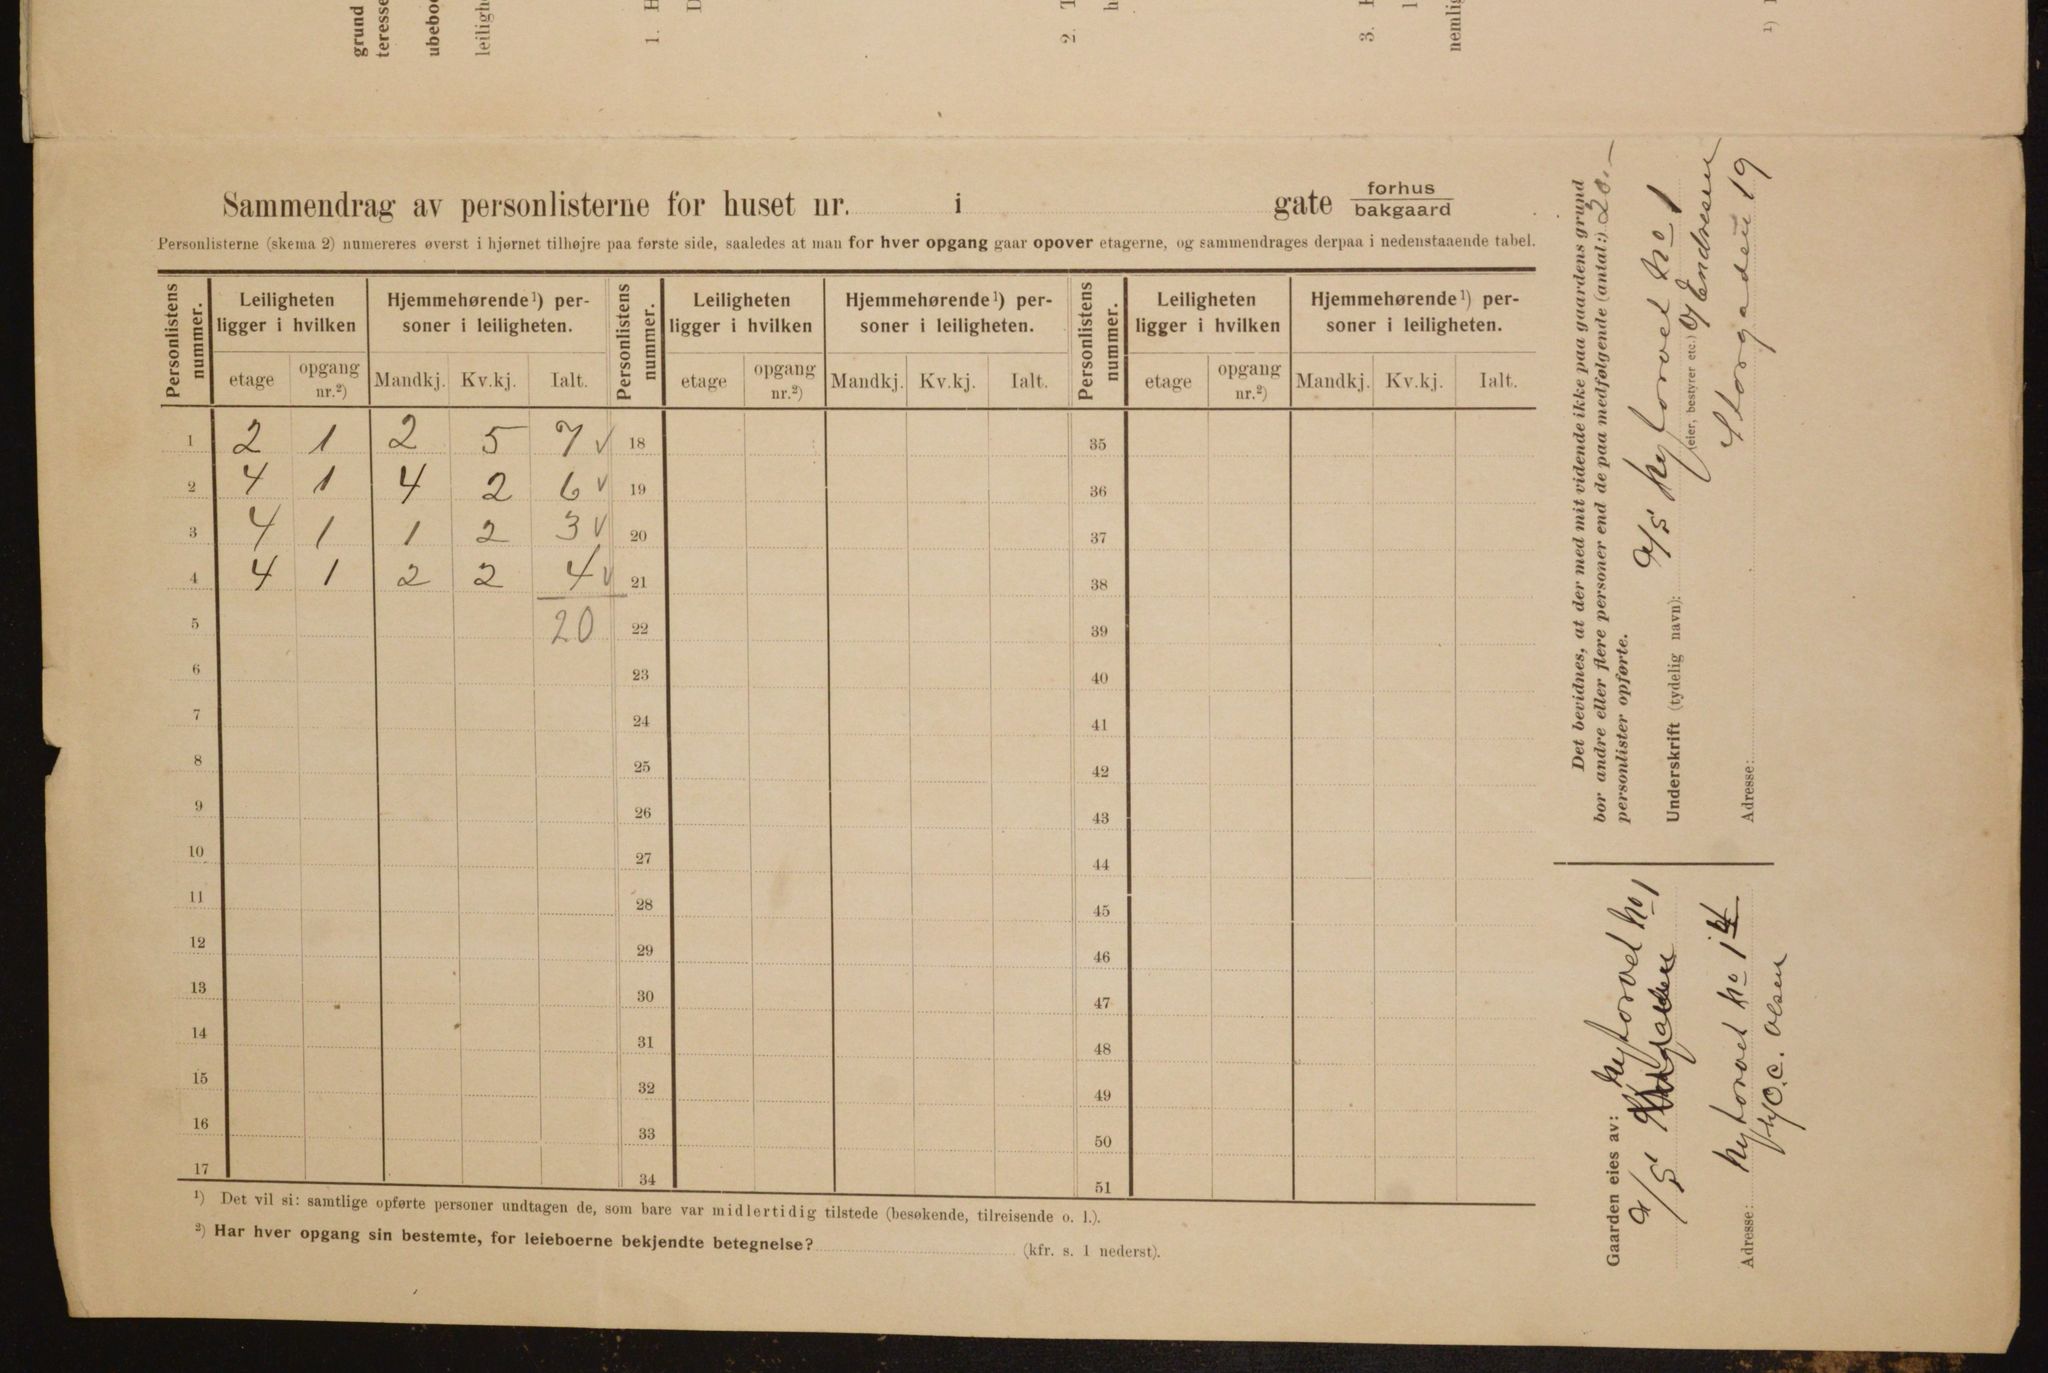 grund
teresse
ubeboe
leiligh
1. H
D
2. T
h
3. H
l
nemlig
1)
Sammendrag av personlisterne for huset nr. i gate forhus
bakgaard
Personlisterne (skema 2) numereres øverst i hjørnet tilhøjre paa første side, saaledes at man for hver opgang gaar opover etagerne, og sammendrages derpaa i nedenstaaende tabel.
Personlistens nummer. Leiligheten ligger i hvilken Hjemmehørende¹) personer i leiligheten. Personlistens nummer. Leiligheten ligger i hvilken Hjemmehørende¹) personer i leiligheten. Personlistens nummer. Leiligheten ligger i hvilken Hjemmehørende¹) personer i leiligheten.
etage opgang nr.²) Mandkj. Kv.kj. Ialt. etage opgang nr.²) Mandkj. Kv.kj. Ialt. etage opgang nr.²) Mandkj. Kv.kj. Ialt.
1 2 1 2 5 7 √ 18 35
2 4 1 4 2 6 √ 19 36
3 4 1 1 2 3 √ 20 37
4 4 1 2 2 4 √ 21 38
5 20 22 39
6 23 40
7 24 41
8 25 42
9 26 43
10 27 44
11 28 45
12 29 46
13 30 47
14 31 48
15 32 49
16 33 50
17 34 51
¹) Det vil si: samtlige opførte personer undtagen de, som bare var midlertidig tilstede (besøkende, tilreisende o. l.).
²) Har hver opgang sin bestemte, for leieboerne bekjendte betegnelse? (kfr. s. 1 nederst).
Det bevidnes, at der med mit vidende ikke paa gaardens grund
bor andre eller flere personer end de paa medfølgende (antal:) 20.—
personlister opførte.
A/S Nytorvet No 1
Underskrift (tydelig navn): (eier, bestyrer etc.) Endresen
Storgaden 19
Adresse:
Gaarden eies av: Nytorvet No 1
A/S
Adresse: Nytorvet No 1
C. Olsen